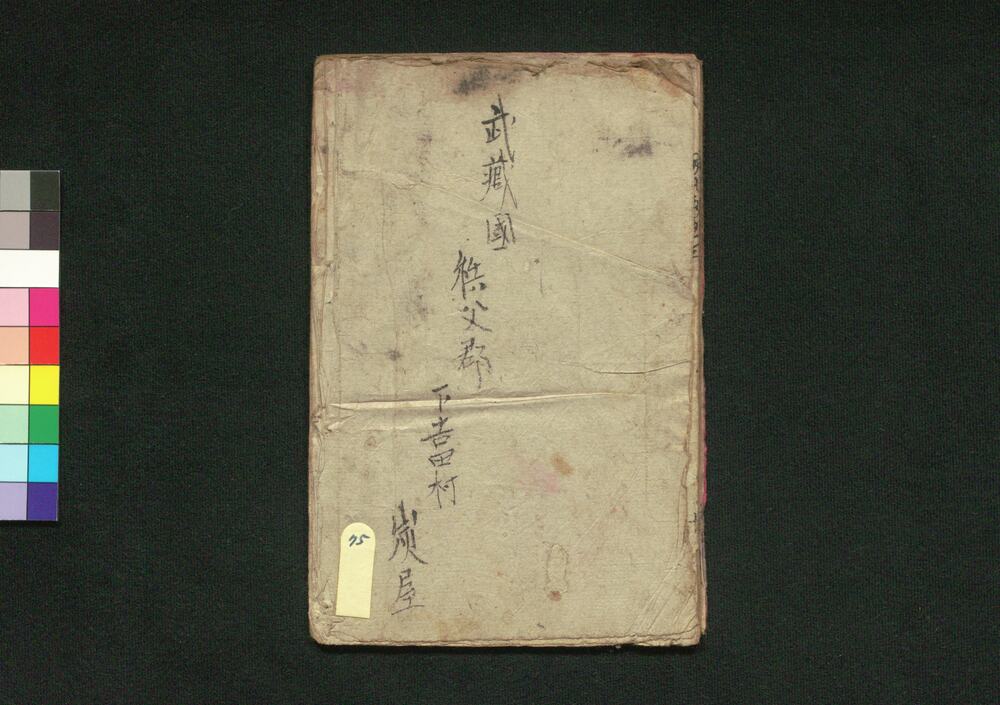 武藏國
秩父郡
下吉田村
炭屋
75